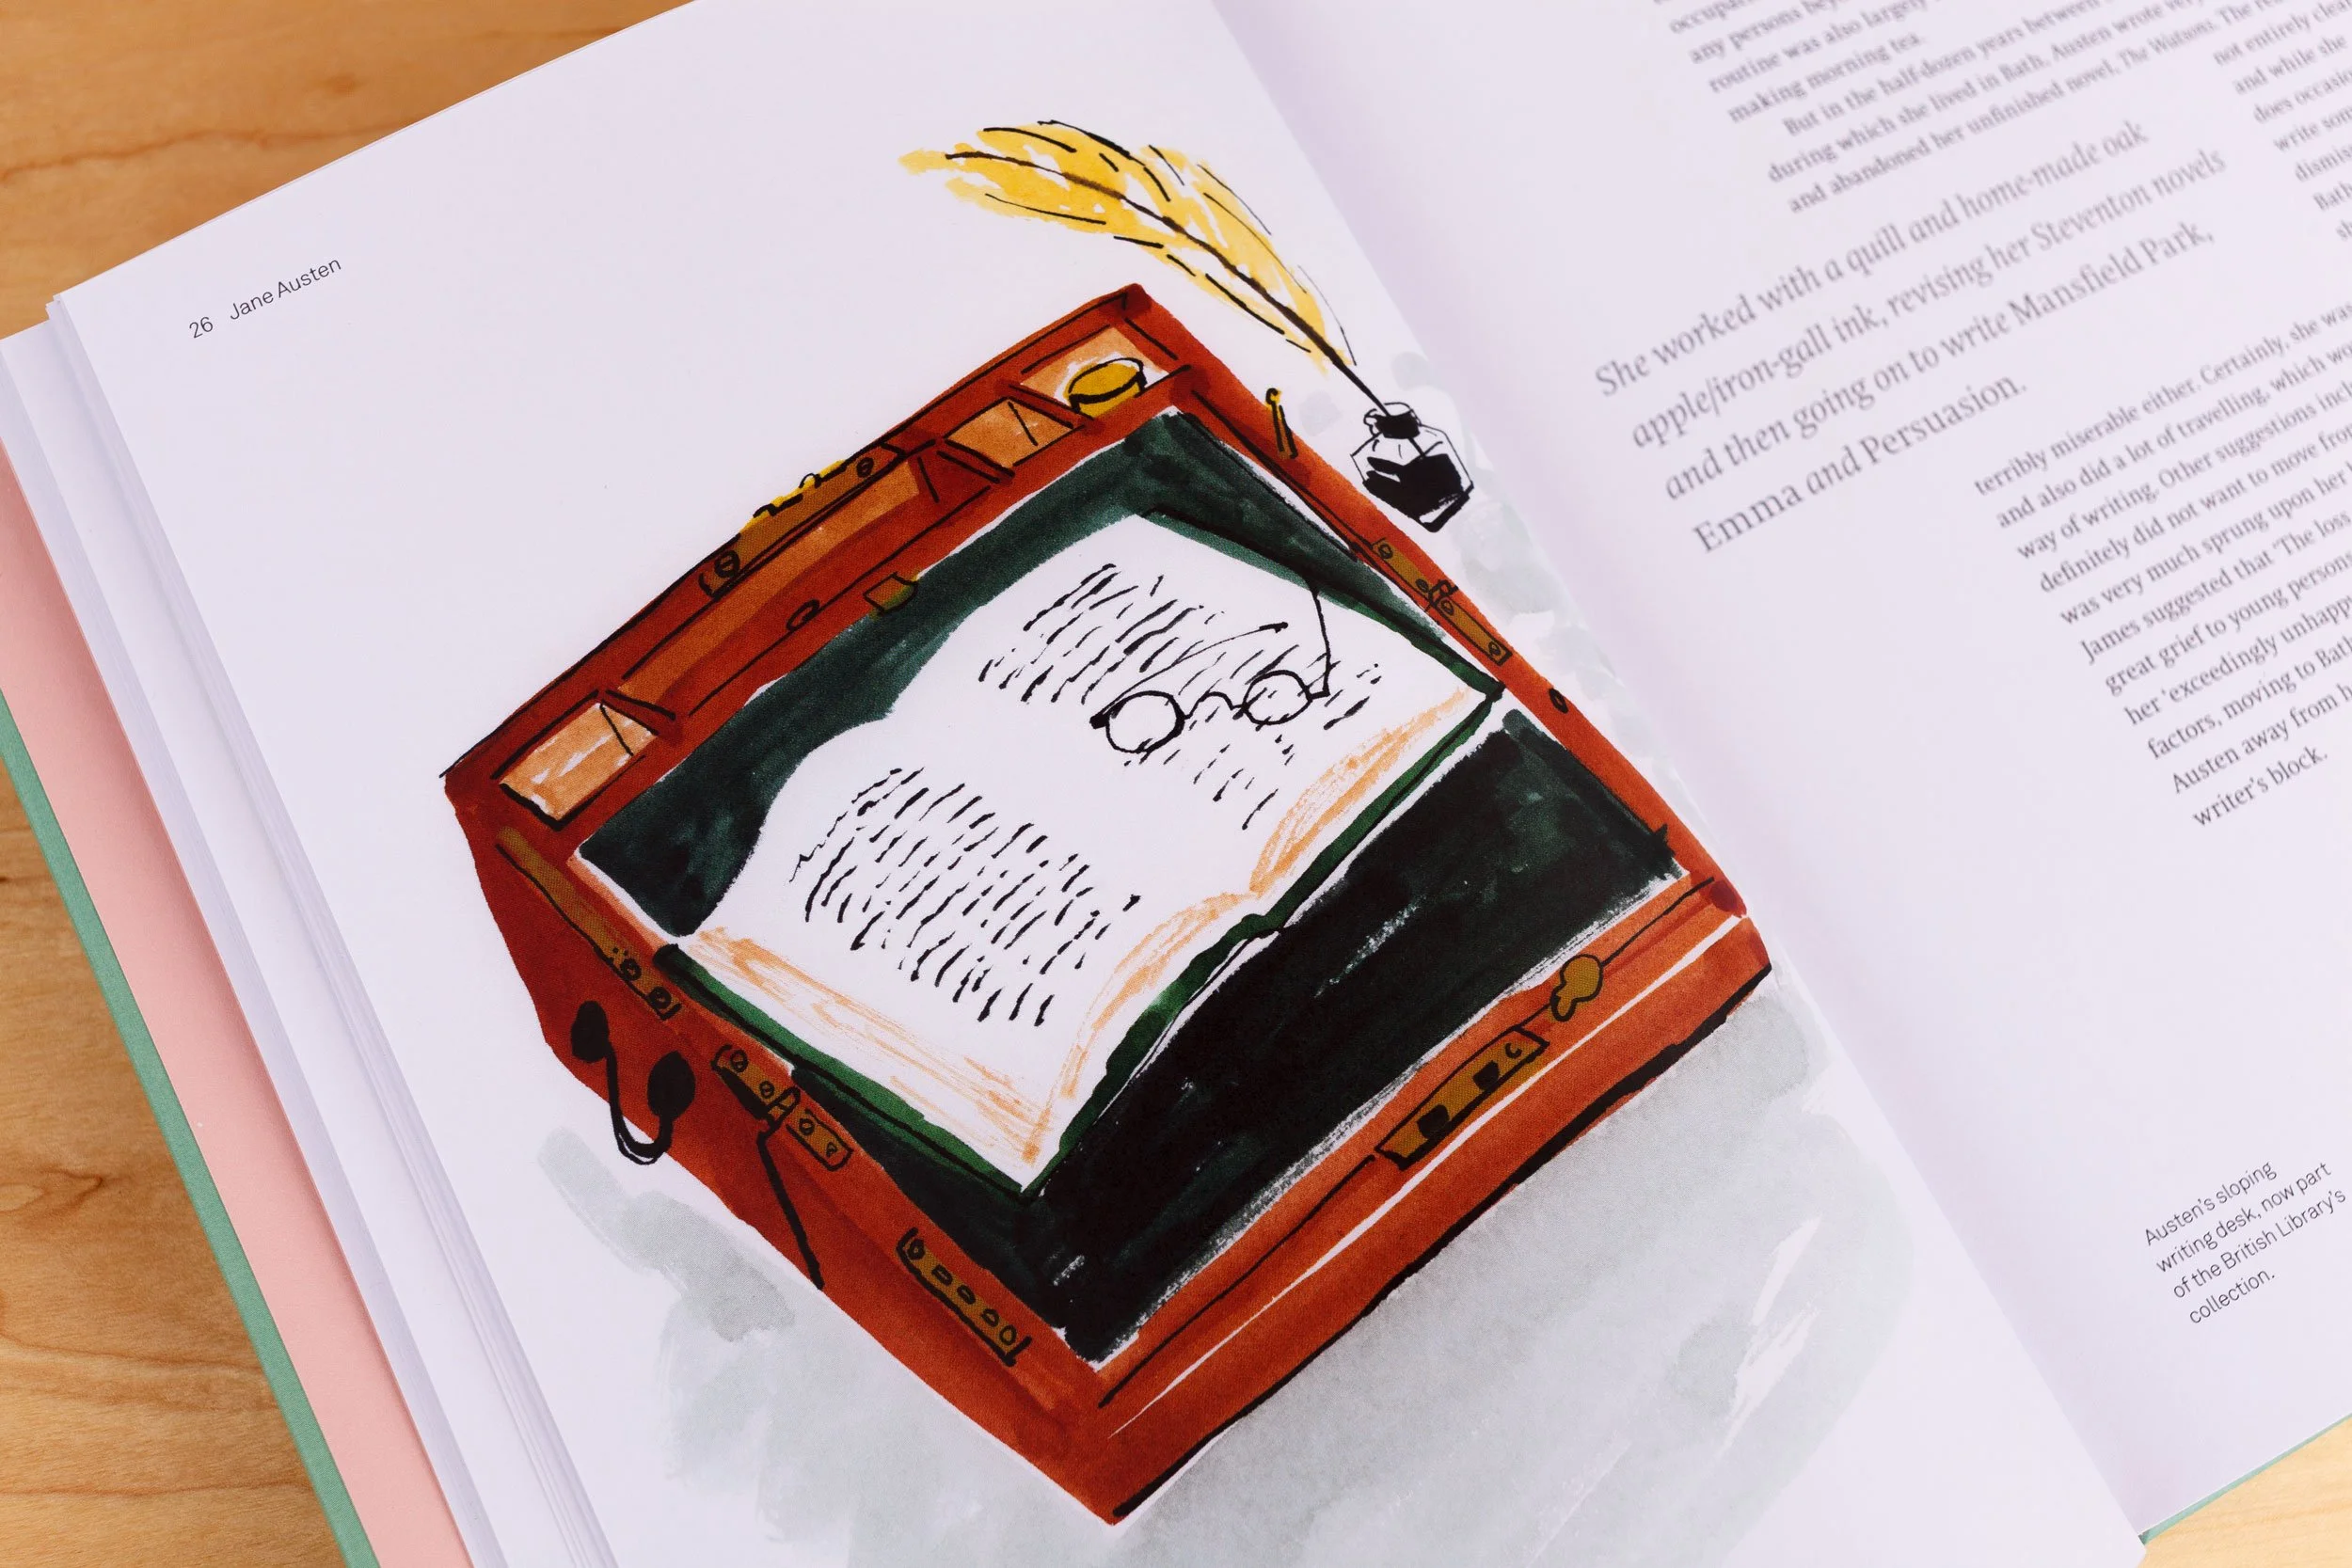 26 Jane Austen
any persons bey
routine was also largely
making morning tea.
But in the half-dozen years between
during which she lived in Bath, Austen wrote very
and abandoned her unfinished novel, The Watsons. The rea
She worked with a quill and home-made oak
apple/iron-gall ink, revising her Steventon novels
and then going on to write Mansfield Park,
Emma and Persuasion.
terribly miserable either. Certainly, she was
and also did a lot of travelling, which wo
way of writing. Other suggestions incl
definitely did not want to move from
was very much sprung upon her
James suggested that ‘The loss
great grief to young persons
her ‘exceedingly unhapp
factors, moving to Bath
Austen away from h
writer’s block.
not entirely clea
and while she
does occasio
write som
dismis
Bath
Austen’s sloping
writing desk, now part
of the British Library’s
collection.